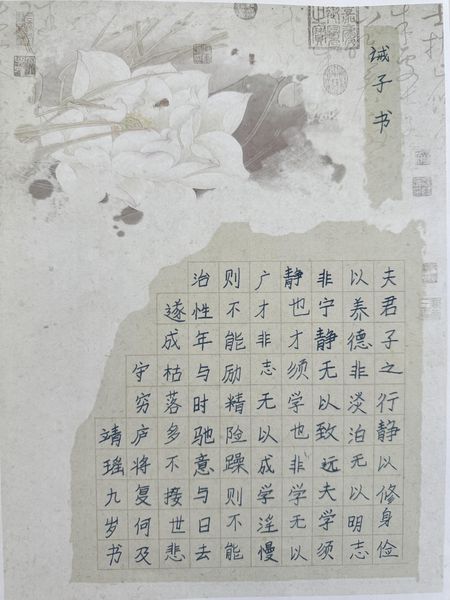 诫子书
夫君子之行静以修身俭
以养德非淡泊无以明志
非宁静无以致远夫学须
静也才须学也非学无以
广才非志无以成学淫慢
则不能励精险躁则不能
治性年与时驰意与日去
遂成枯落多不接世悲
守穷庐将复何及
靖瑶九岁书